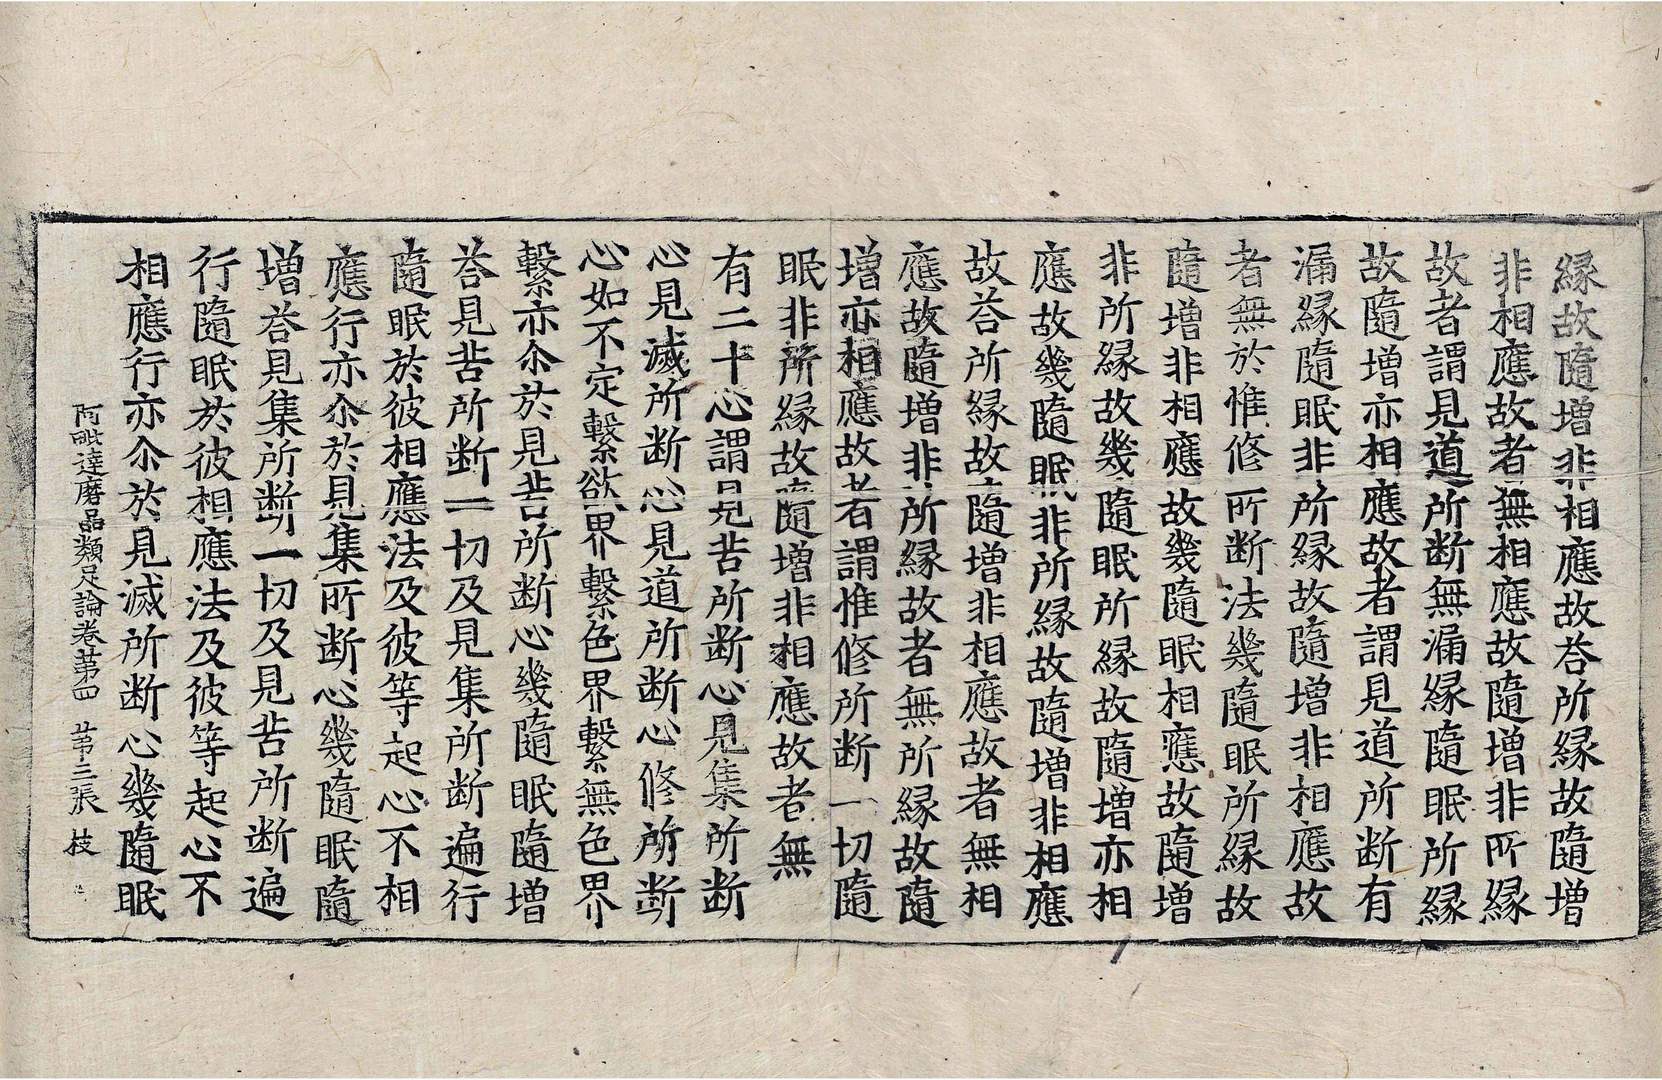 縁故隨增非相應故荅所縁故隨增
非相應故者無相應故隨增非所縁
故者謂見道所断無漏縁隨眠所縁
故隨增亦相應故者謂見道所断有
漏縁隨眠非所縁故隨增非相應故
者無於惟修所断法幾隨眠所縁故
隨增非相應故幾隨眠相應故隨增
非所縁故幾隨眠所縁故隨增亦相
應故幾隨眠非所縁故隨增非相應
故荅所縁故隨增非相應故者無相
應故隨增非所縁故者無所縁故隨
增亦相應故者謂惟修所断一切隨
眠非所縁故隨增非相應故者無
有二十心謂見苦所断心見集所断
心見滅所断心見道所断心修所断
心如不定繋欲界繋色界繋無色界
繋亦尒於見苦所断心幾隨眠隨增
荅見苦所断一切及見集所断遍行
隨眠於彼相應法及彼等起心不相
應行亦尒於見集所断心幾隨眠隨
增荅見集所断一切及見苦所断遍
行隨眠於彼相應法及彼等起心不
相應行亦尒於見滅所断心幾隨眠
阿毗達磨品類足論卷第四 第三張 技